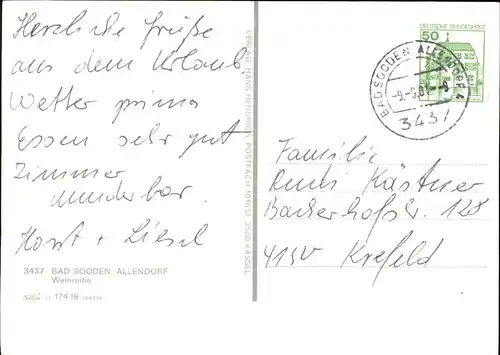 Herzliche Grüße
aus dem Urlaub
Wetter prima
Essen sehr gut
Zimmer
wunderbar.
Horst + Liesel
3437 BAD SOODEN-ALLENDORF
Weinreihe
174 18
VERLAG HANS HENDRICH, POSTFACH 101651, 3500 KASSEL
DEUTSCHE BUNDESPOST
50
BAD SOODEN-ALLENDORF
3437
Familie
Kästner
128
4150 Krefeld